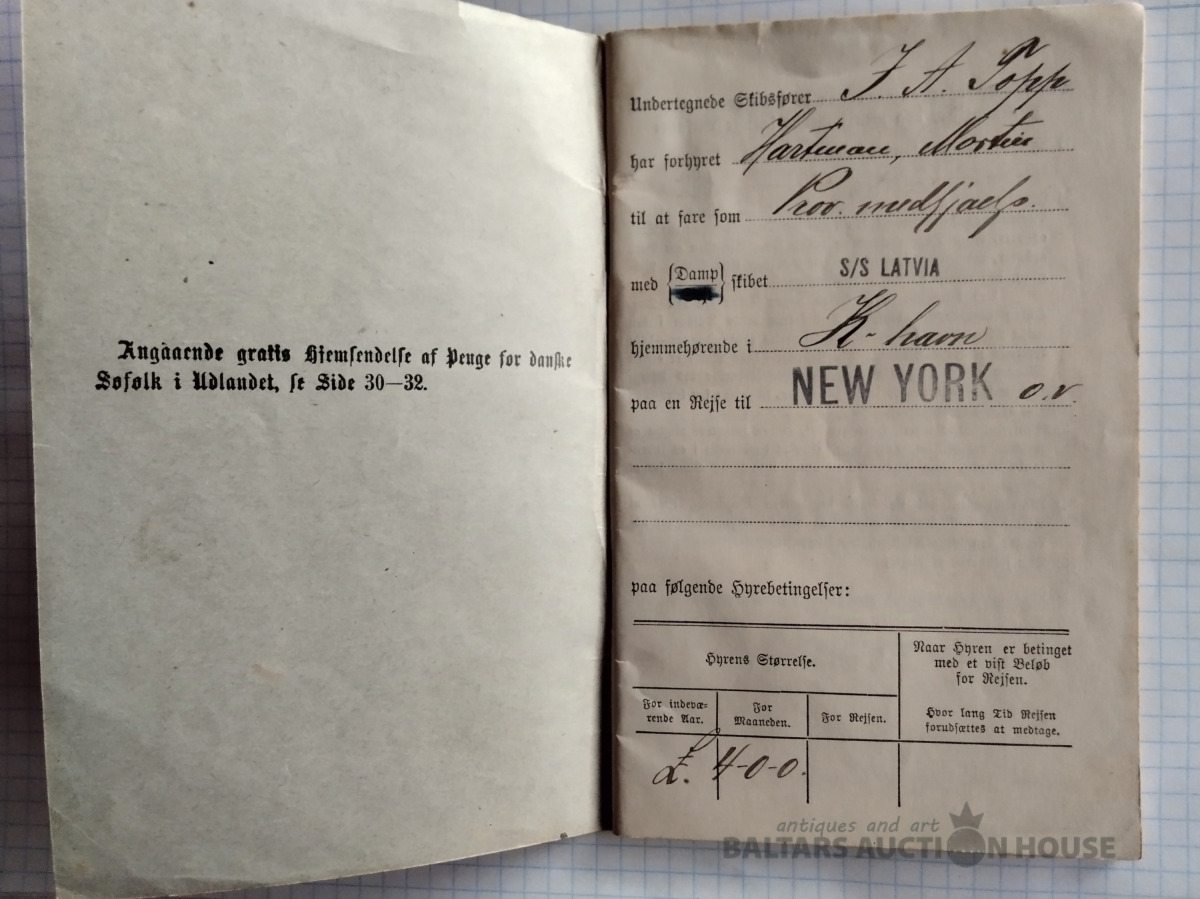 Angaaende gratis Hjemsendelse af Penge for danske
Søfolk i Udlandet, se Side 30—32.
Undertegnede Skibsfører J. A. Topp
har forhyret Hartman, Martin
til at fare som Prov. medhjælp.
med {Damp} skibet S/S LATVIA
hjemmehørende i K-havn
paa en Rejse til NEW YORK o.v.
paa følgende Hyrebetingelser:
Hyrens Størrelse.
For indevæ-
rende Aar.
For
Maaneden.
For Rejsen.
Naar Hyren er betinget
med et vist Beløb
for Rejsen.
Hvor lang Tid Rejsen
forudsættes at medtage.
£. 4-0-0.
antiques and art
BALTARS AUCTION HOUSE